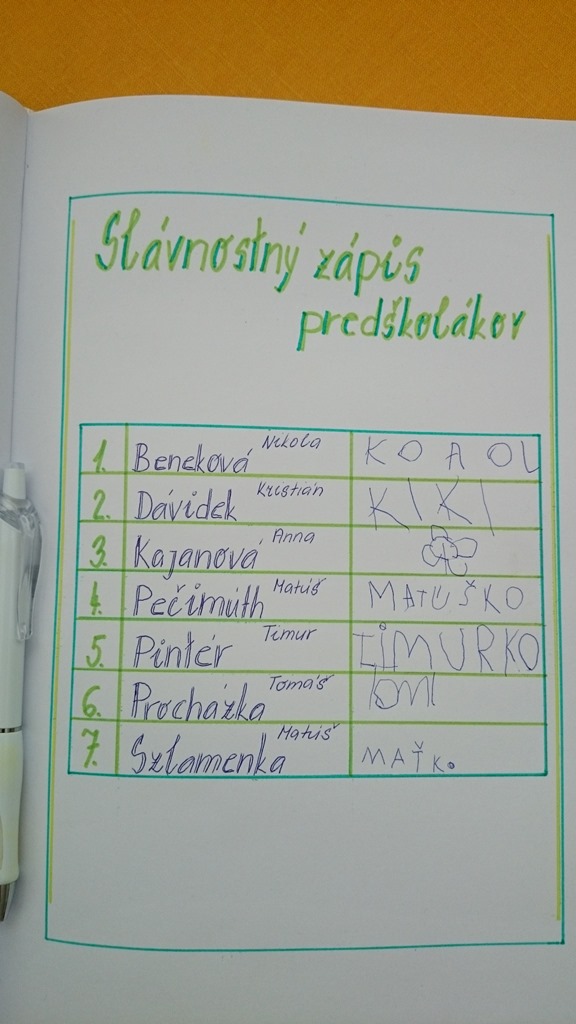 Slávnostný zápis
predškolákov
1. Beneková Nikola K O A OL
2. Dávidek Kristián KIKI
3. Kajanová Anna
4. Pečimúth Matúš MATÚŠKO
5. Pintér Timur TIMURKO
6. Procházka Tomáš TOMI
7. Szlamenka Matúš MAŤKO